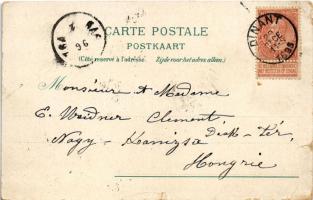 CARTE POSTALE
POSTKAART
(Côté réservé à l'adresse. Zijde voor het adres alleen.)
DINANT
96
Monsieur et Madame
E. Weidner Clement
Deák-tér,
Nagy-Kanizsa
Hongrie